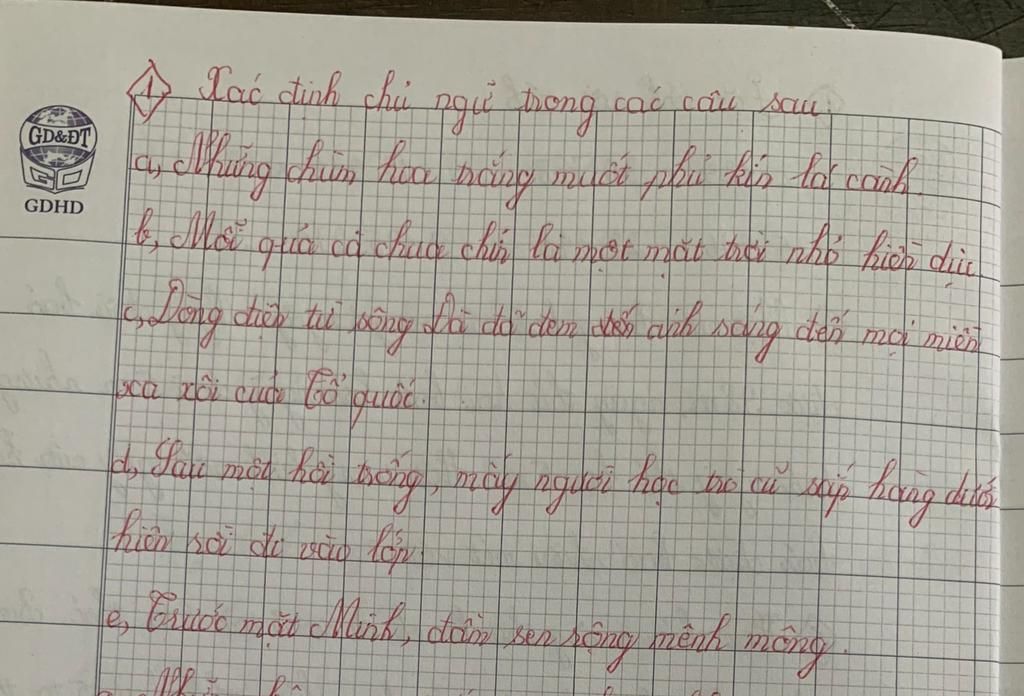 GD&ĐT
GDHD
1 Xác định chủ ngữ trong các câu sau:
a, Những chùm hoa trắng muốt phủ kín lá cành.
b, Mỗi quả cà chua chín là một mặt trời nhỏ hiền dịu.
c, Dòng điện từ sông Đà đã đem ánh sáng đến mọi miền
xa xôi của Tổ quốc.
d, Sau một hồi trống, mấy người học trò cũ sắp hàng dưới
hiên rồi đi vào lớp.
e, Trước mặt Minh, đầm sen rộng mênh mông.